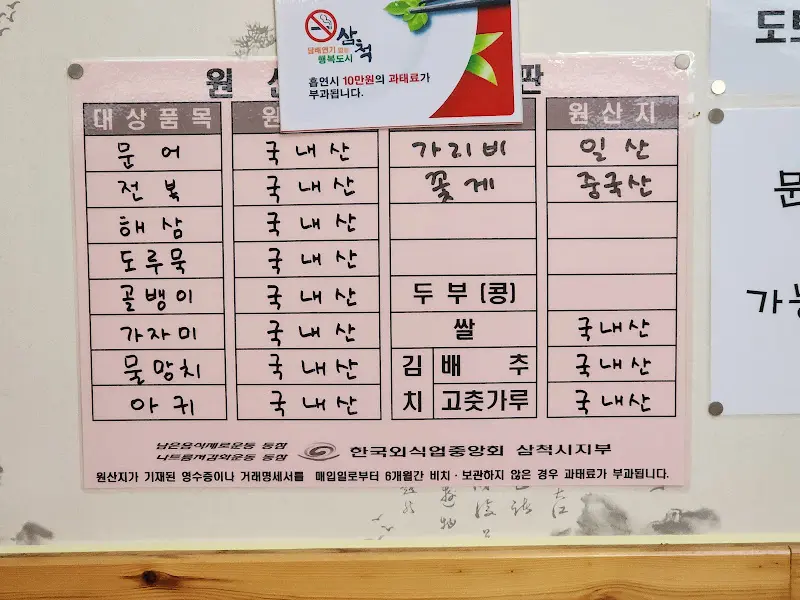 삼척
담배연기 없는
행복도시
흡연시 10만원의 과태료가
부과됩니다.
원 산 판
대상품목 원 원산지
문어 국내산 가리비 일산
전복 국내산 꽃게 중국산
해삼 국내산
도루묵 국내산
골뱅이 국내산 두부(콩)
가자미 국내산 쌀 국내산
물망치 국내산 김치 배추 국내산
아귀 국내산 고춧가루 국내산
남은음식제로운동 동참
나트륨저감화운동 동참
한국외식업중앙회 삼척시지부
원산지가 기재된 영수증이나 거래명세서를 매입일로부터 6개월간 비치·보관하지 않은 경우 과태료가 부과됩니다.
문
가능